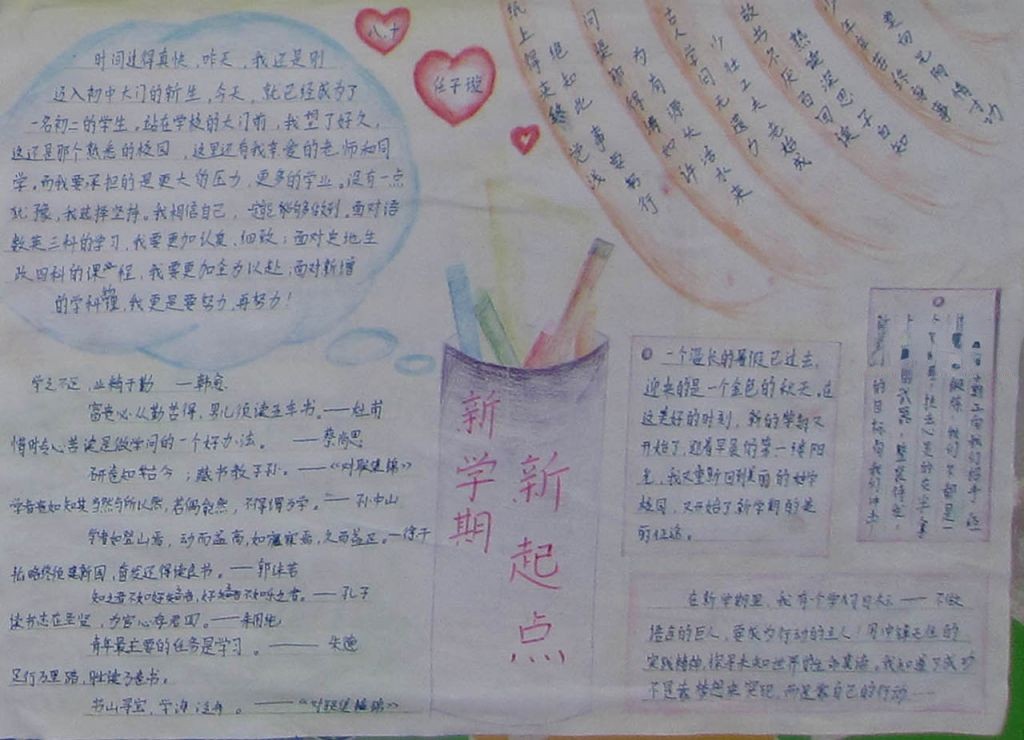 时间过得真快,昨天,我还是刚
迈入初中大门的新生,今天,就已经成为了
一名初二的学生。站在学校的大门前,我望了好久,
这还是那个熟悉的校园,这里还有我亲爱的老师和同
学,而我要承担的是更大的压力,更多的学业。没有一点
犹豫,我选择坚持。我相信自己,一定能够做到。面对语
数英三科的学习,我要更加认真、细致;面对史地生
政四科的课程,我要更加全力以赴;面对新增
的学科物理,我更是要努力,再努力!
八.十
任子璇
纸上得来终觉浅
绝知此事要躬行
问渠那得清如许
为有源头活水来
古人学问无遗力
少壮工夫老始成
故书不厌百回读
熟读深思子自知
新学期
新起点
学之不足,业精于勤 —韩愈
富贵必从勤苦得,男儿须读五车书。——杜甫
惜时专心苦读是做学问的一个好办法。 ——蔡尚思
研卷知古今;藏书教子孙。——《对联集锦》
学者贵知其当然与所以然,若偶能然,不得谓为学。——孙中山
学者如登山焉,动而益高,如寤寐焉,久而益足。—徐干
拓略终须建新国,奋发还得读良书。——郭沫若
知之者不如好之者,好之者不如乐之者。——孔子
读书志在圣贤,为官心存君国。——朱用纯
青年最主要的任务是学习。—— 朱德
足行万里路,胜读万卷书。
书山 学海 。——《对联集锦》
一个漫长的暑假已过去,
迎来的是一个金色的秋天。在
这美好的时刻,新的学期又
开始了,迎着早晨的第一缕阳
光,我又重新回到美丽的
校园,又开始了新学期的
的征途。
向我们招手
锻炼,我们
的目标向我们冲击
在新学期里,我有个学习目标——不做
语言的巨人,要成为行动的主人!
实践精神,探寻未知世界的生命真谛。我知道了成功
不是靠梦想来实现,而是靠自己的行动……